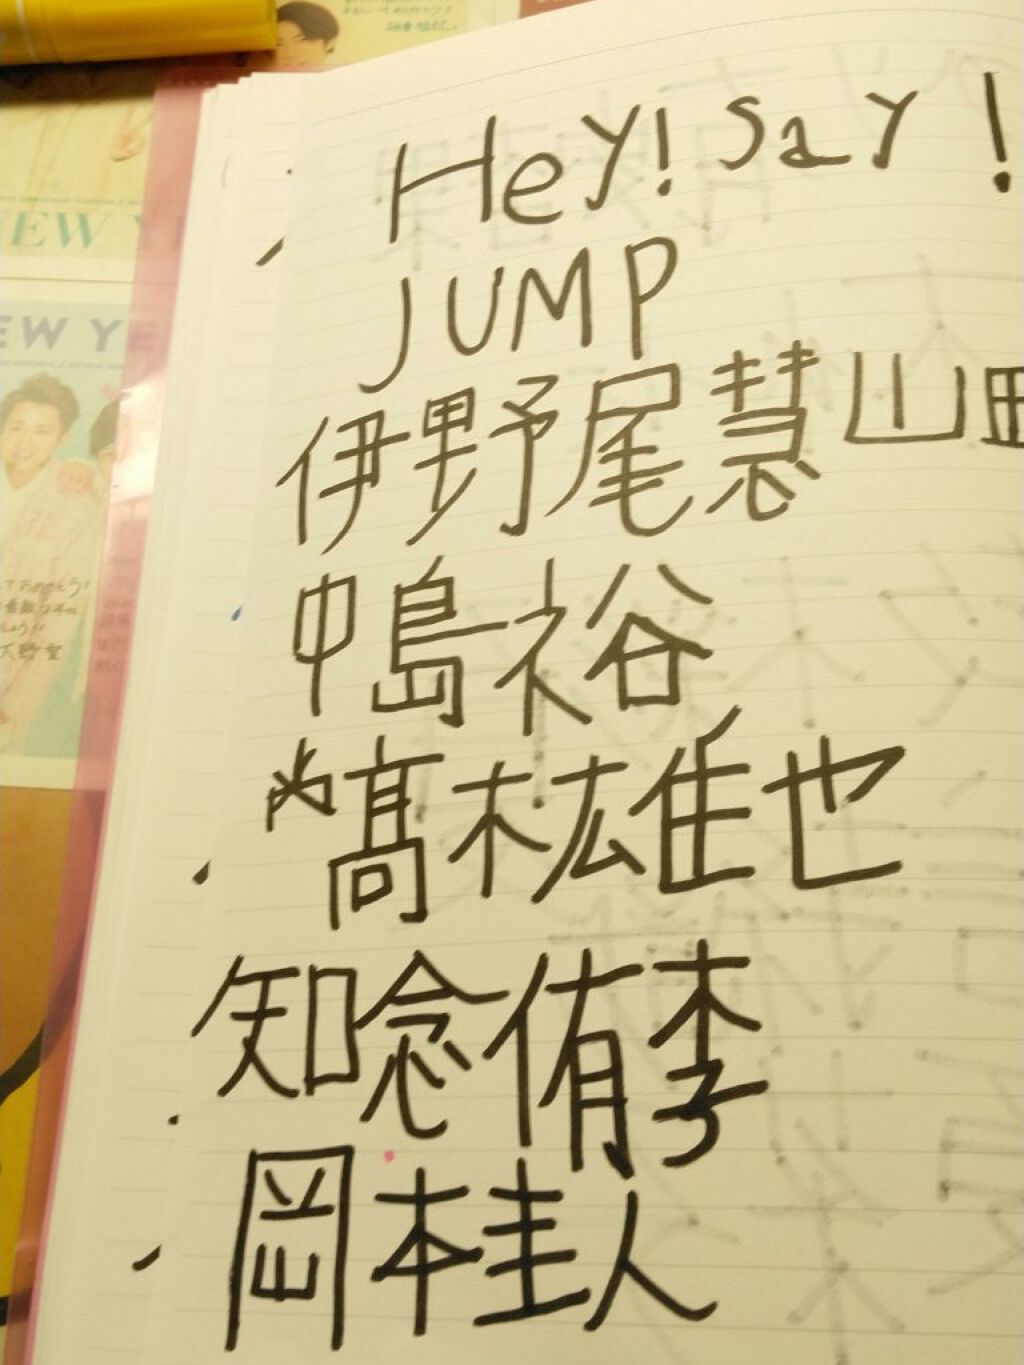 Hey! Say!
JUMP
伊野尾慧山田
中島裕
髙木宏雄也
知念侑李
岡本圭人
NEW YE
EW YE